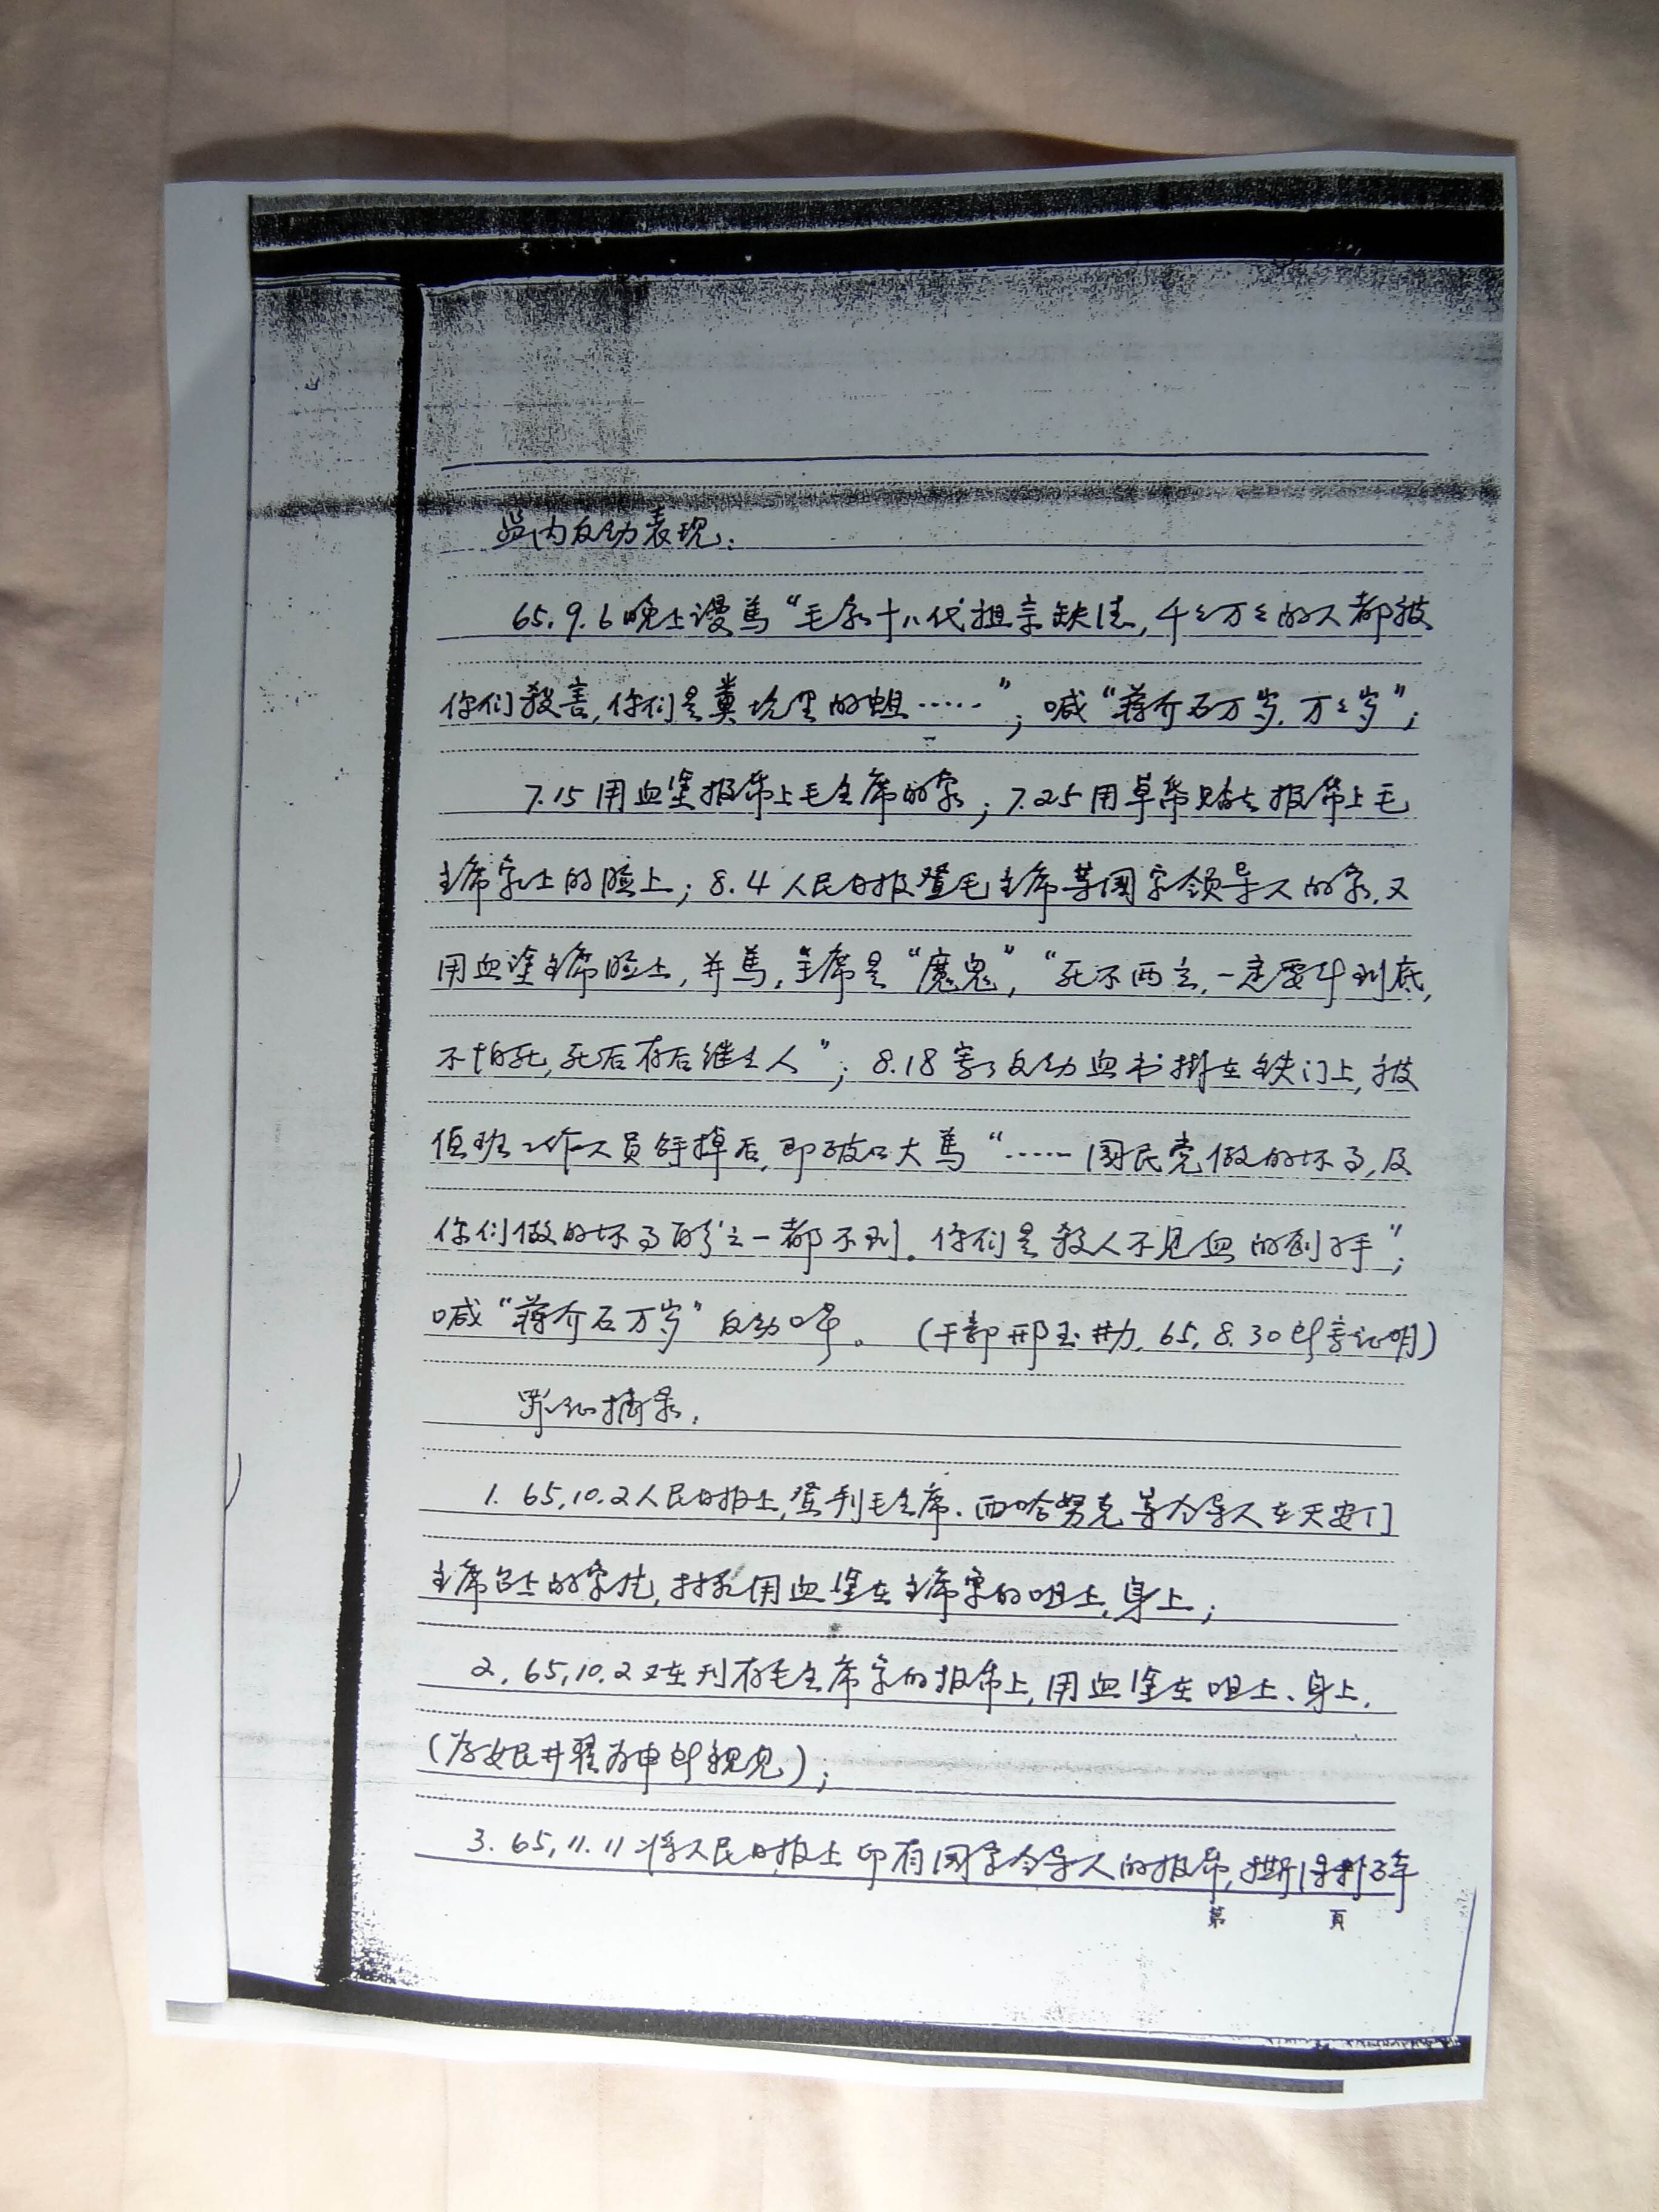 监内反动表现：
65.9.6晚上谩骂“毛家十八代祖宗缺德，千々万々的人都被
你们殺害，你们是粪坑里的蛆……”；喊“蒋介石万岁，万々岁”；
7.15用血塗报纸上毛主席的像；7.25用草纸贴在报纸上毛
主席像上的脸上；8.4人民日报登毛主席等国家领导人的像，又
用血塗主席脸上，并骂，主席是“魔鬼”，“死不两立，一定要斗到底，
不怕死，死后有后继之人”；8.18写了反动血书掛在铁门上，被
值班工作人员掉后，即破口大骂“……国民党做的坏事，及
你们做的坏事百分之一都不到。你们是殺人不见血的刽子手”；
喊“蒋介石万岁”反动口号。（干部邢玉，65，8.30证明）
罪证摘录，
1. 65，10.2人民日报上，登刊毛主席、西哈努克等令导人在天安门
主席台上的像片，用血塗在主席像的咀上，身上；
2，65，10.2又在刊有毛主席像的报纸上，用血塗在咀上、身上，
3. 65，11.11将人民日报上印有国家令导人的报纸，撕得
第 頁